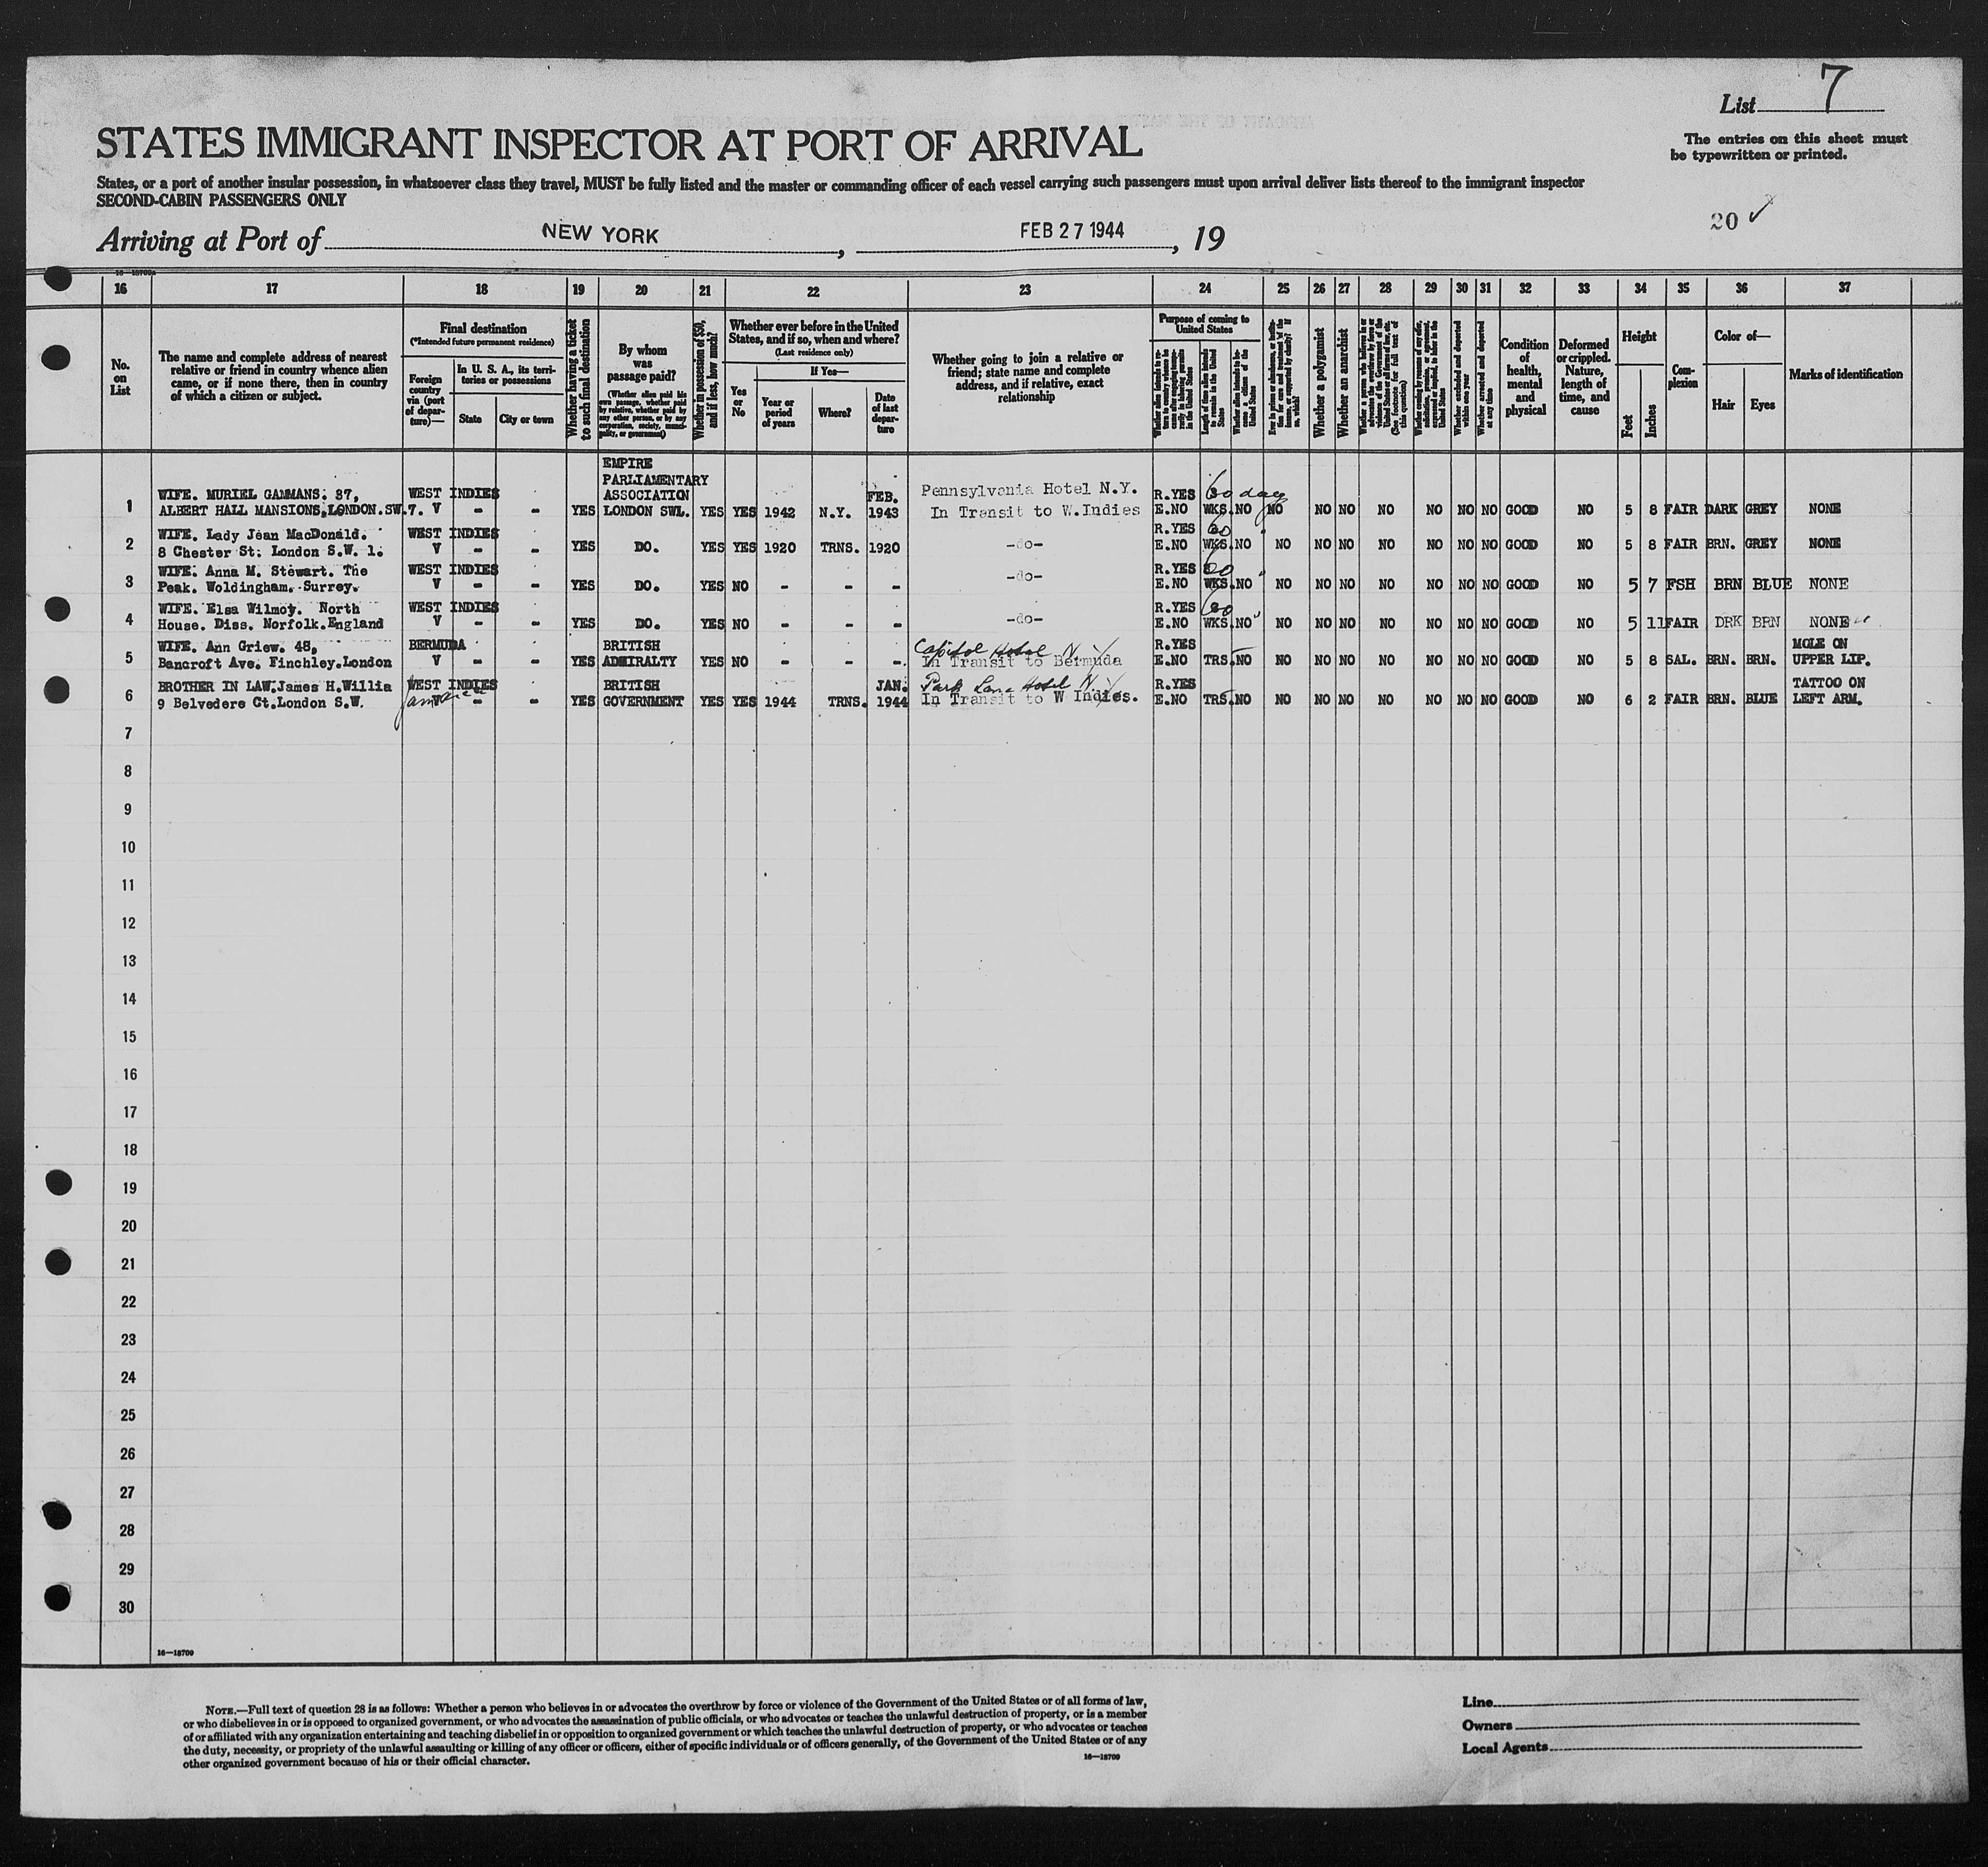 List 7
The entries on this sheet must
be typewritten or printed.
STATES IMMIGRANT INSPECTOR AT PORT OF ARRIVAL
States, or a port of another insular possession, in whatsoever class they travel, MUST be fully listed and the master or commanding officer of each vessel carrying such passengers must upon arrival deliver lists thereof to the immigrant inspector
SECOND-CABIN PASSENGERS ONLY
20 ✓
Arriving at Port of NEW YORK, FEB 27 1944, 19
16 17 18 19 20 21 22 23 24 25 26 27 28 29 30 31 32 33 34 35 36 37
No. on List
The name and complete address of nearest
relative or friend in country whence alien
came, or if none there, then in country
of which a citizen or subject.
Final destination
(*Intended future permanent residence)
Foreign country via (port of departure)—
In U. S. A., its territories or possessions
State
City or town
Whether having a ticket to such final destination
By whom was passage paid?
(Whether alien paid his own passage, whether paid by relative, whether paid by any other person, or by any corporation, society, municipality, or government)
Whether in possession of $50, and if less, how much?
Whether ever before in the United States, and if so, when and where?
(Last residence only)
Yes or No
If Yes—
Year or period of years
Where?
Date of last departure
Whether going to join a relative or
friend; state name and complete
address, and if relative, exact
relationship
Purpose of coming to United States
Length of time alien intends to remain in the United States
Whether alien intends to become a citizen of the United States
Whether a polygamist
Whether an anarchist
(See footnote for full text of this question)
Whether excluded and deported within one year
Whether arrested and deported at any time
Condition of health, mental and physical
Deformed or crippled. Nature, length of time, and cause
Height
Feet
Inches
Complexion
Color of—
Hair
Eyes
Marks of identification
EMPIRE
PARLIAMENTARY
1 WIFE. MURIEL GAMMANS. 37, WEST INDIES ASSOCIATION FEB. Pennsylvania Hotel N.Y. R.YES 60 days
ALBERT HALL MANSIONS, LONDON.SW.7. V - - YES LONDON SW1. YES YES 1942 N.Y. 1943 In Transit to W.Indies E.NO WKS. NO NO NO NO NO NO NO NO GOOD NO 5 8 FAIR DARK GREY NONE
2 WIFE. Lady Jean MacDonald. WEST INDIES R.YES 60 "
8 Chester St. London S.W. 1. V YES DO. YES YES 1920 TRNS. 1920 -do- E.NO WKS. NO NO NO NO NO NO NO NO GOOD NO 5 8 FAIR BRN. GREY NONE
3 WIFE. Anna M. Stewart. The WEST INDIES R.YES 60 "
Peak. Woldingham. Surrey. V YES DO. YES NO - - - -do- E.NO WKS. NO NO NO NO NO NO NO NO GOOD NO 5 7 FSH BRN BLUE NONE
4 WIFE. Elsa Wilmot. North WEST INDIES R.YES 60 "
House. Diss. Norfolk.England V YES DO. YES NO - - - -do- E.NO WKS. NO NO NO NO NO NO NO NO GOOD NO 5 11 FAIR DRK BRN NONE
5 WIFE. Ann Griew. 48, BERMUDA BRITISH Capitol Hotel N.Y. R.YES MOLE ON
Bancroft Ave. Finchley.London V YES ADMIRALTY YES NO - - - In Transit to Bermuda E.NO TRS. NO NO NO NO NO NO NO NO GOOD NO 5 8 SAL. BRN. BRN. UPPER LIP.
6 BROTHER IN LAW.James H.Willia WEST INDIES BRITISH JAN. Park Lane Hotel N.Y. R.YES TATTOO ON
9 Belvedere Ct.London S.W. Jamaica - - YES GOVERNMENT YES YES 1944 TRNS. 1944 In Transit to W Indies. E.NO TRS. NO NO NO NO NO NO NO NO GOOD NO 6 2 FAIR BRN. BLUE LEFT ARM.
7
8
9
10
11
12
13
14
15
16
17
18
19
20
21
22
23
24
25
26
27
28
29
30
16—18709
NOTE.—Full text of question 28 is as follows: Whether a person who believes in or advocates the overthrow by force or violence of the Government of the United States or of all forms of law,
or who disbelieves in or is opposed to organized government, or who advocates the assassination of public officials, or who advocates or teaches the unlawful destruction of property, or is a member
of or affiliated with any organization entertaining and teaching disbelief in or opposition to organized government or which teaches the unlawful destruction of property, or who advocates or teaches
the duty, necessity, or propriety of the unlawful assaulting or killing of any officer or officers, either of specific individuals or of officers generally, of the Government of the United States or of any
other organized government because of his or their official character.
16—18709
Line
Owners
Local Agents